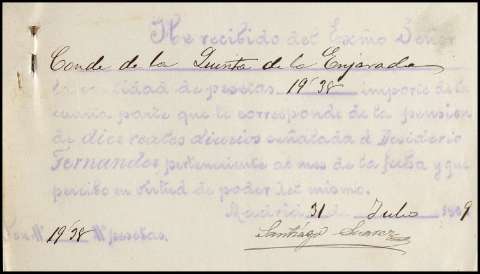 He recibido del Exmo Señor
Conde de la Quinta de la Enjarada
la cantidad de pesetas 19'38 importe de la
cuarta parte que le corresponde de la pension
de diez reales diarios señalada á Desiderio
Fernandez perteneciente al mes de la fecha y que
percibo en virtud de poder del mismo.
Madrid 31 de Julio 9
Son 19'38 pesetas.
Santiago Suarez